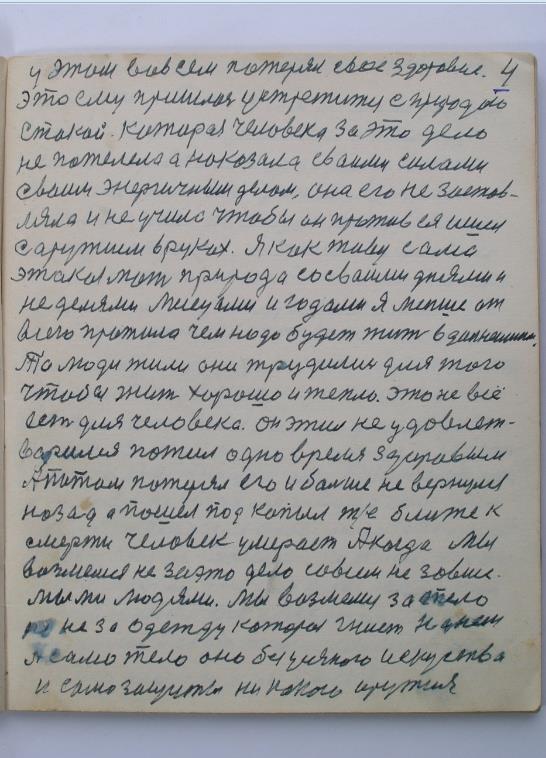 у этом вовсем потерял свое здоровие. 4
Это ему пришлося устретится с природою
стакой. Которая человека за это дело
не пожелела а нокозала сваими силами
своим энергичным делом, она его не застов-
ляла и не учила чтобы он против ея ишел
соружием в руках. Я как живу сама
этакая мать природа сосваими днями и
неделями месецами и годами я меньше от
всего прожила чем надо будет жить в дальнейшим.
То люди жили они трудилися для того
чтобы жить хорошо и тепло. Это не всё
есть для человека. Он этим не удовлет-
варился пожил одно время здоровым
А потом потерял его и больше не вернулся
нозад а пошел под копыл т/е ближе к
смерти человек умерает А когда мы
возмемся не за это дело совсем не зовис.
мыми людями. Мы возмемся за тело
не за одежду которая гниет на нем
А само тело оно без усякого искуства
и само защиты ни какого оружия